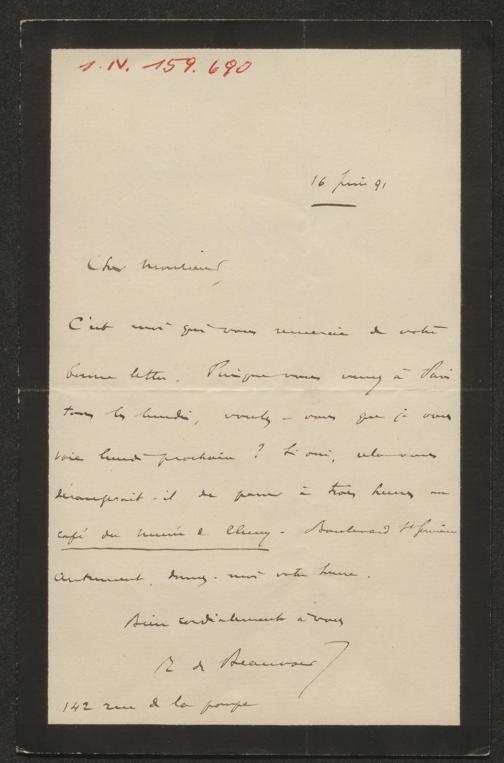 1. N. 159.690
16 juin 91
Cher Monsieur,
C'est moi qui vous remercie de votre
bonne lettre. Puisque vous venez à Paris
tous les lundis, voulez-vous que je vous
voie lundi prochain ? Si oui, cela vous
dérangerait-il de passer à trois heures au
café du musée de Cluny - Boulevard St Germain
autrement, donnez-moi votre heure.
Bien cordialement à vous
R de Beauvoir
142 rue de la pompe